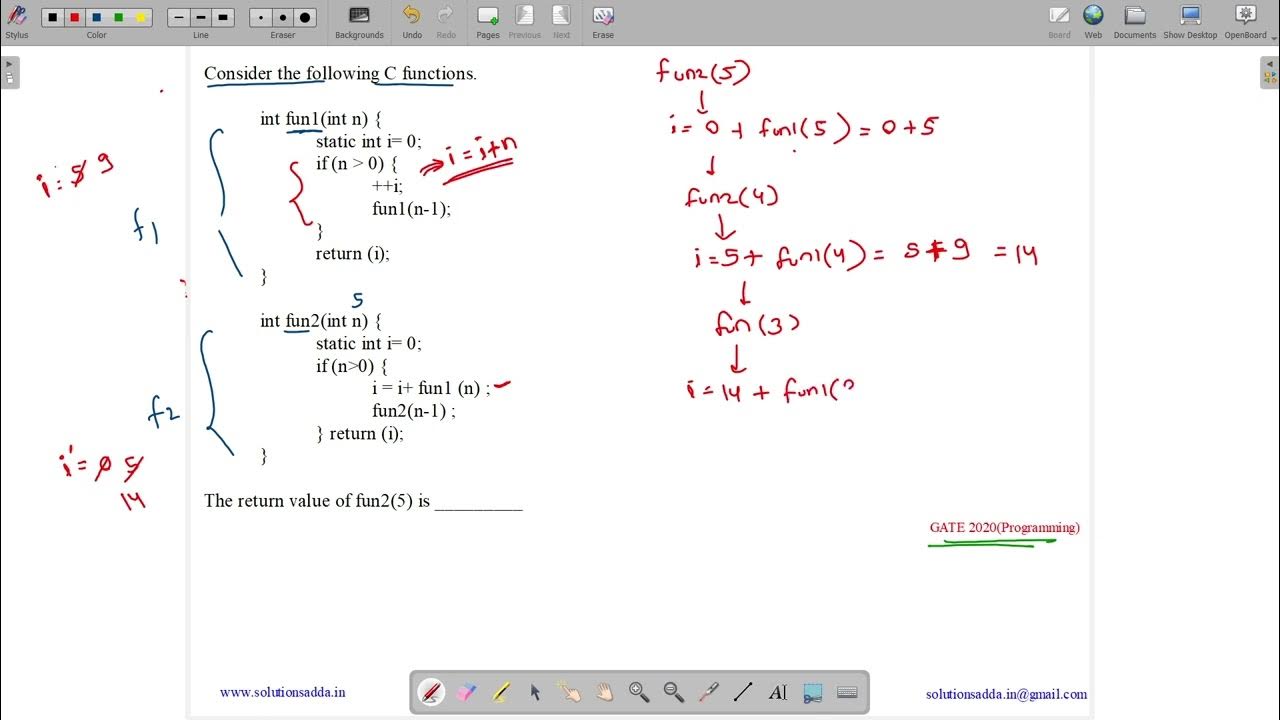 Stylus
Color
Line
Eraser
Backgrounds
Undo
Redo
Pages
Previous
Next
Erase
Board
Web
Documents
Show Desktop
OpenBoard
Consider the following C functions.
int fun1(int n) {
static int i= 0;
if (n > 0) {
++i;
fun1(n-1);
}
return (i);
}
int fun2(int n) {
static int i= 0;
if (n>0) {
i = i+ fun1 (n) ;
fun2(n-1) ;
} return (i);
}
The return value of fun2(5) is _________
GATE 2020(Programming)
i = i+n
i = 5 9
f1
5
f2
i = 0 5
14
fun2(5)
i = 0 + fun1(5) = 0+5
fun2(4)
i = 5+ fun1(4) = 5+9 = 14
fun(3)
i = 14 + fun1(
www.solutionsadda.in
solutionsadda.in@gmail.com
AI